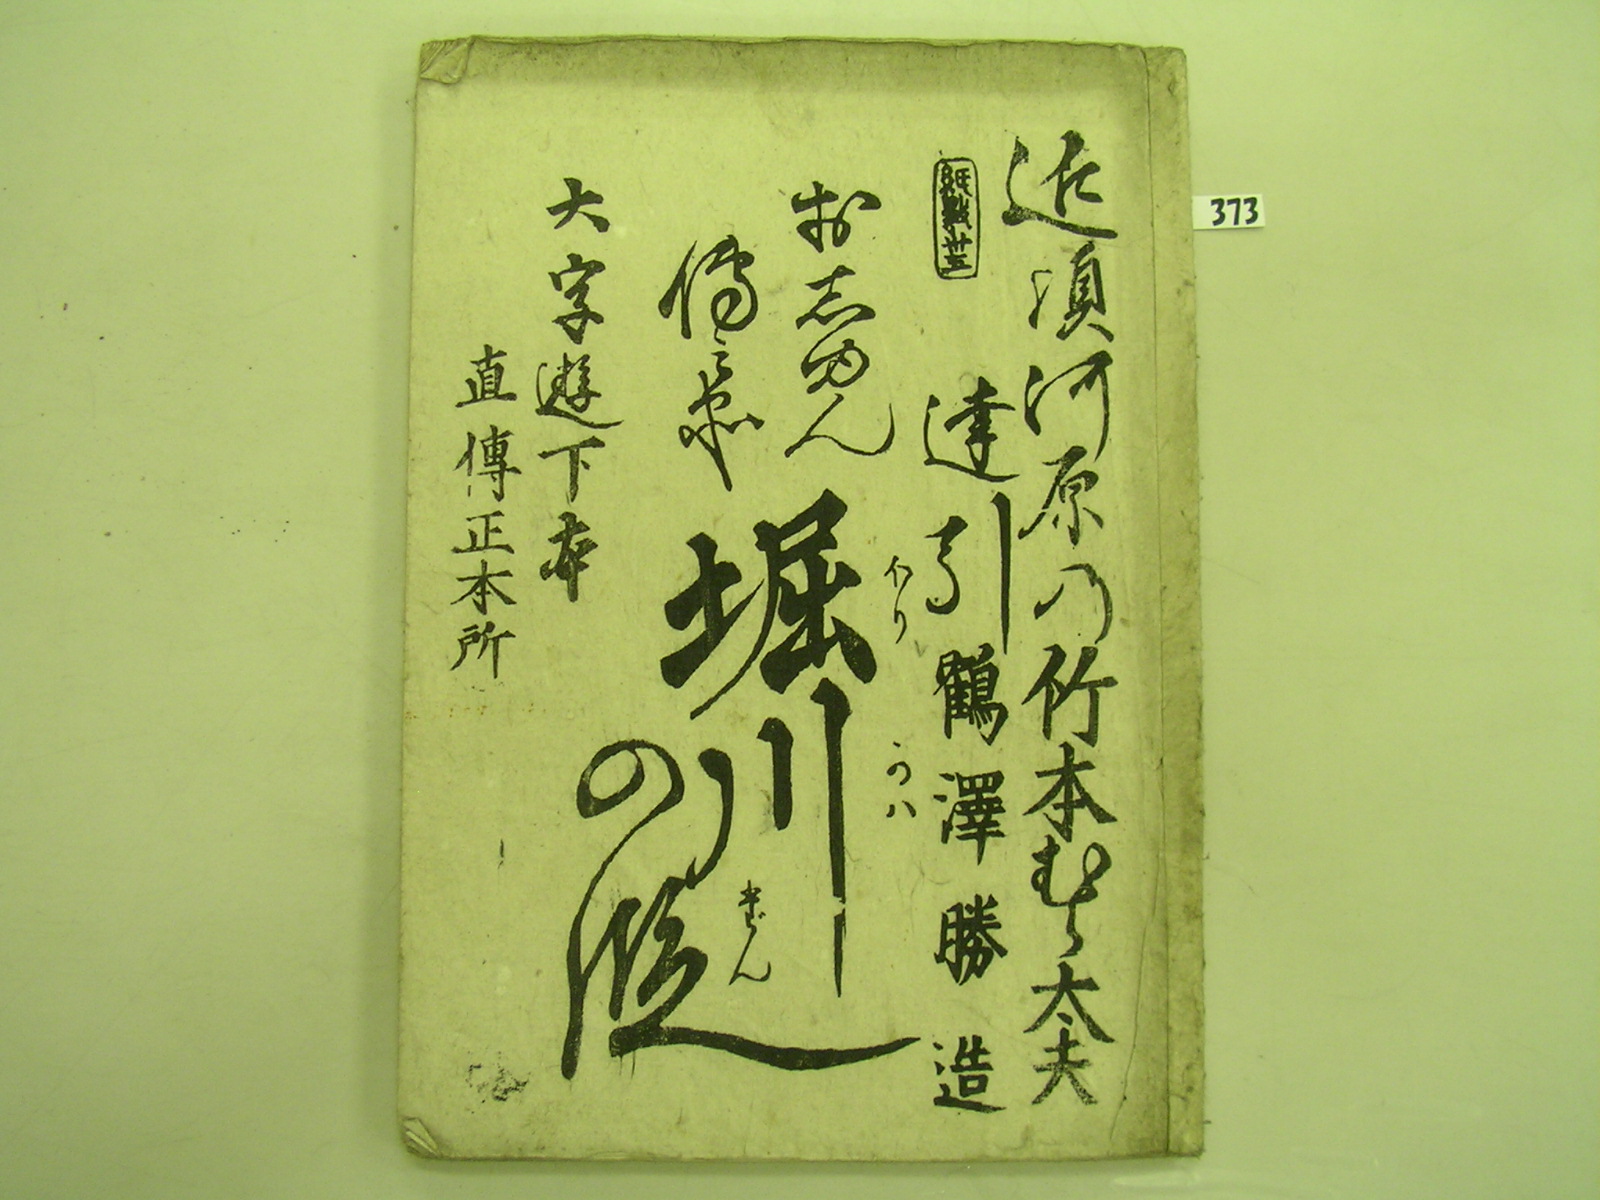 近頃河原の
達引
竹本むら太夫
鶴澤勝造
紙数廿三
おしゅん
傳兵衛
堀川の段
ほり
かハ
だん
大字遊下本
直傳正本所
373